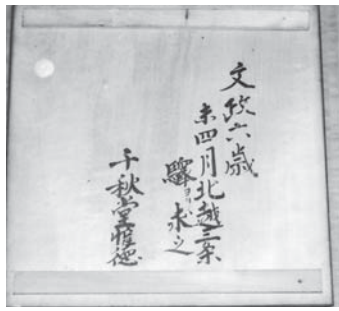 文政六歳
未四月北越三条
驛ニ求之
千秋堂惟徳